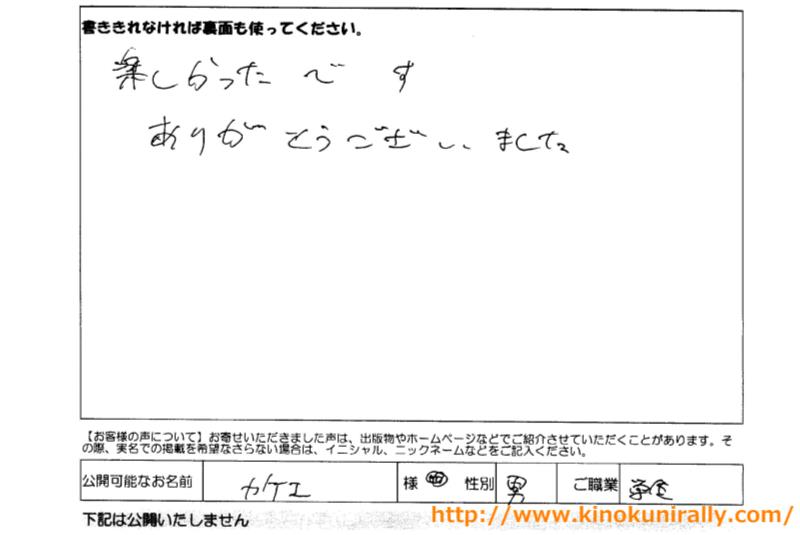 書ききれなければ裏面も使ってください。
楽しかった で す
ありが とうございました
【お客様の声について】お寄せいただきました声は、出版物やホームページなどでご紹介させていただくことがあります。そ
の際、実名での掲載を希望なさらない場合は、イニシャル、ニックネームなどをご記入ください。
公開可能なお名前 カケエ 様 性別 男 ご職業
下記は公開いたしません
http://www.kinokunirally.com/